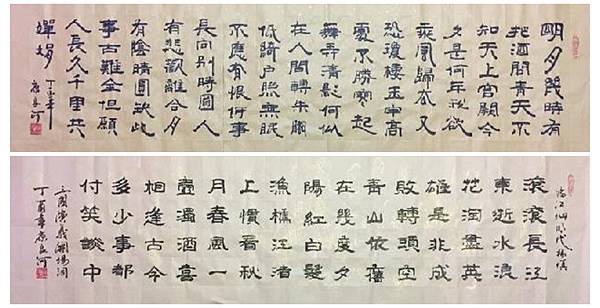 明月幾時有
把酒問青天不
知天上宮闕今
夕是何年我欲
乘風歸去又
恐瓊樓玉宇高
處不勝寒起
舞弄清影何似
在人間轉朱閣
低綺戶照無眠
不應有恨何事
長向別時圓人
有悲歡離合月
有陰晴圓缺此
事古難全但願
人長久千里共
嬋娟
丁酉年
康良河
臨江仙 明代 楊慎
滾滾長江
東逝水浪
花淘盡英
雄是非成
敗轉頭空
青山依舊
在幾度夕
陽紅白髮
漁樵江渚
上慣看秋
月春風一
壺濁酒喜
相逢古今
多少事都
付笑談中
三國演義開場詞
丁酉年康良河